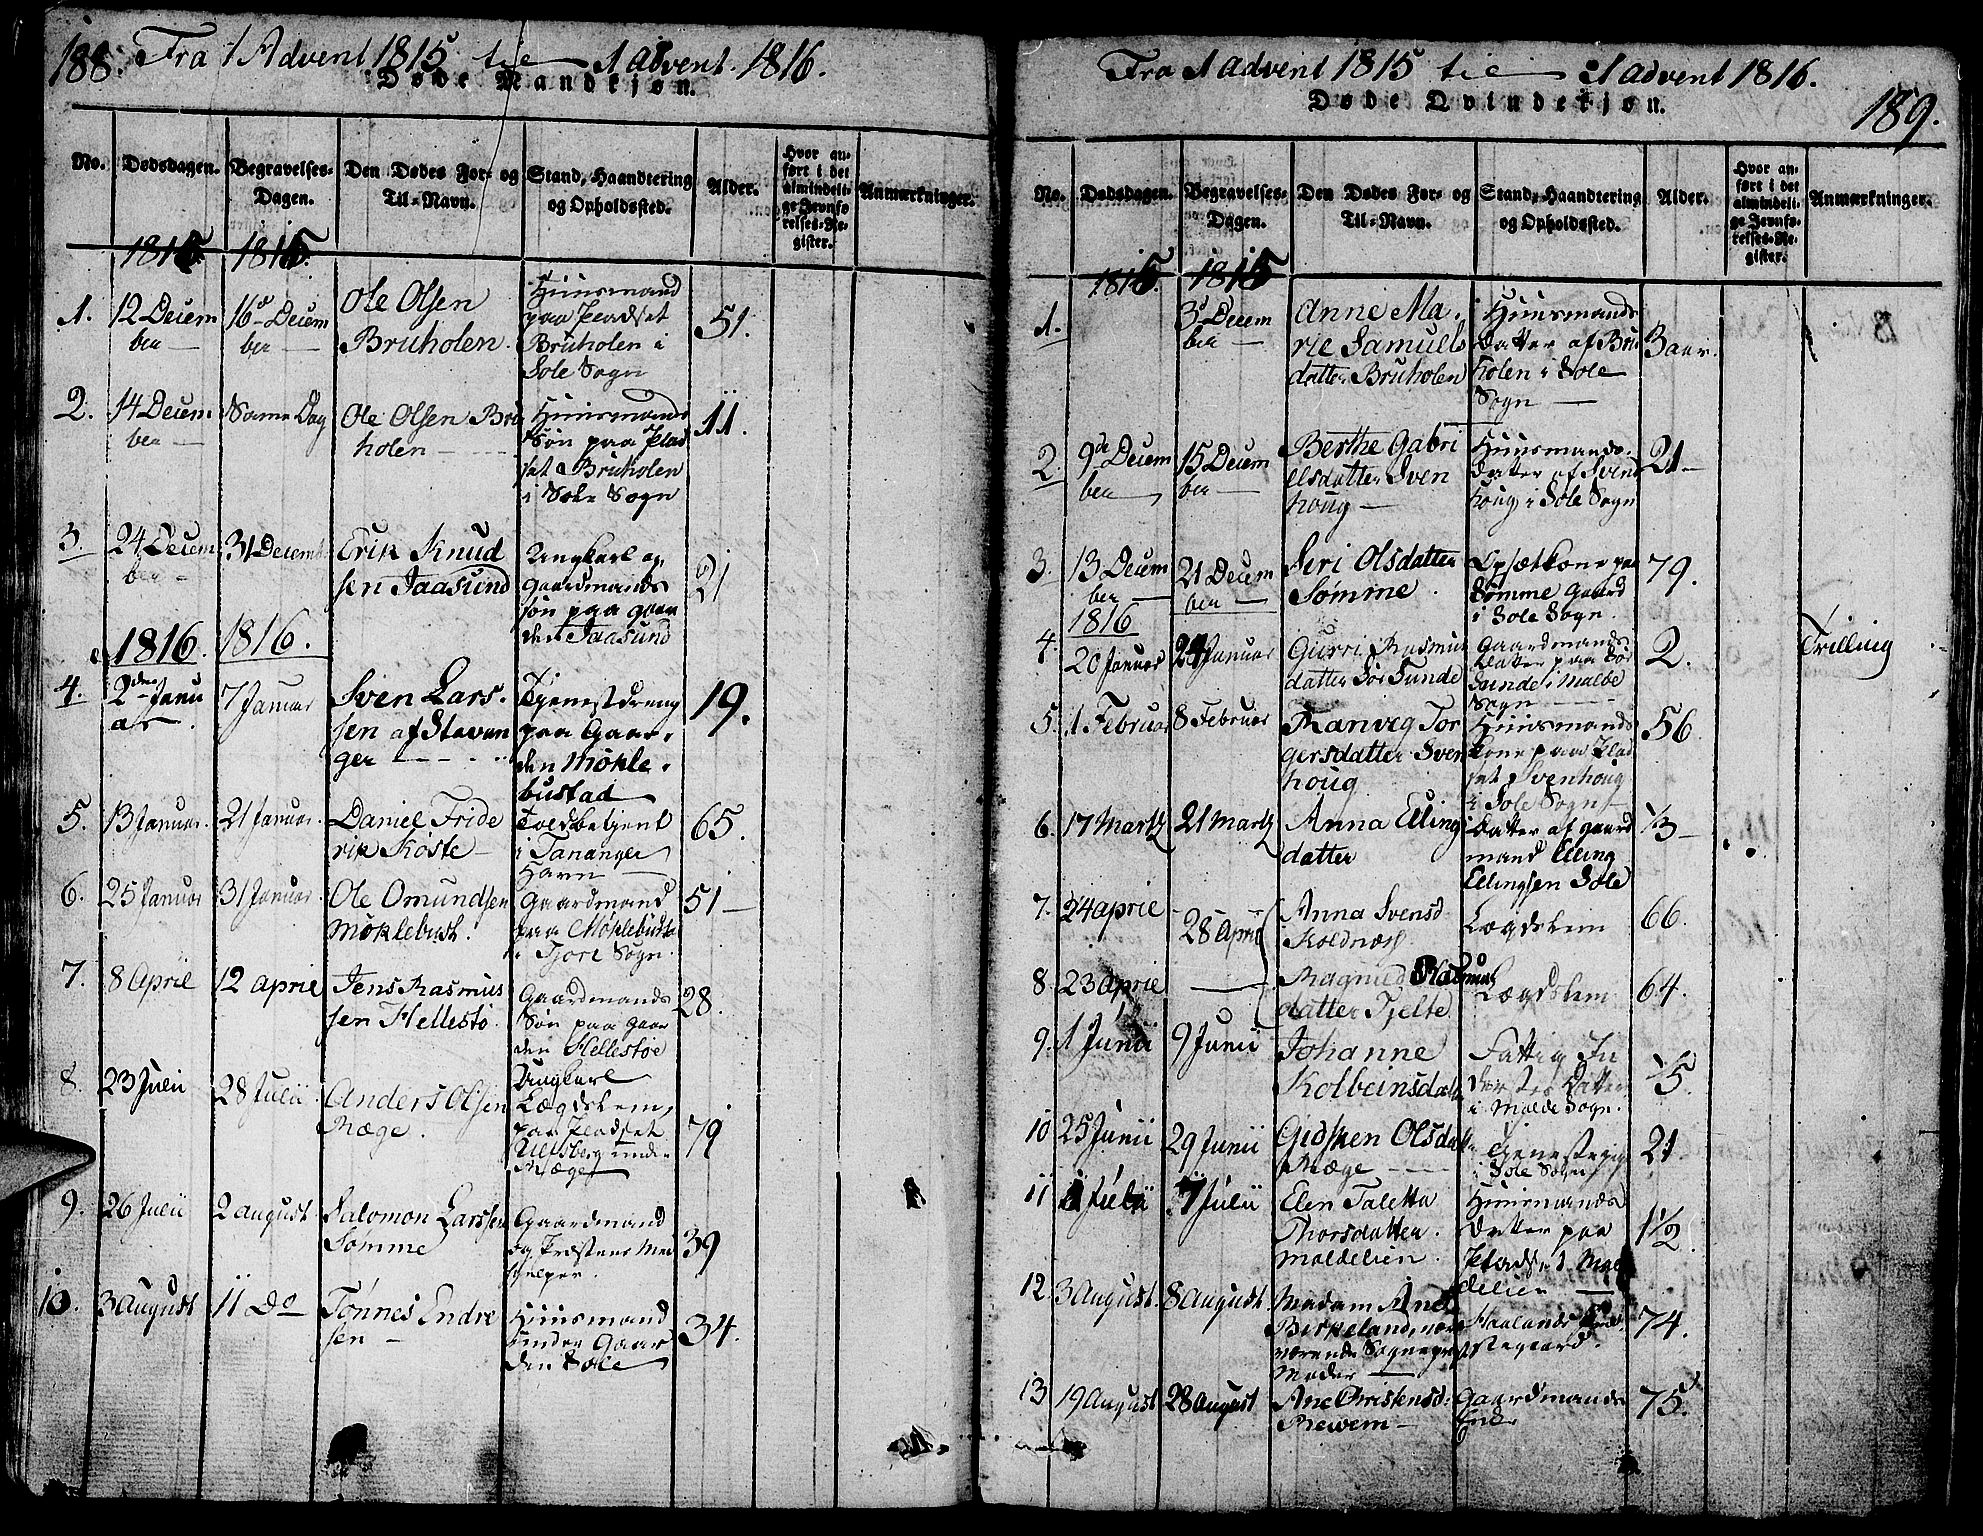 188. Fra 1 Advent 1815 til 1 advent. 1816.
Døde Mandkjøn.
No.
Dødsdagen.
Begravelses-
Dagen.
Den Dødes For- og
Til-Navn.
Stand, Haandtering
og Opholdssted.
Alder.
Hvor an-
ført i det
almindeli-
ge Jevnfø-
relses-Re-
gister.
Anmærkninger.
1815 1815
1.
12 Decem
ber
16d Decem
ber
Ole Olsen
Bruholen.
Huusmand
paa Pladset
Bruholen i
Sole Sogn
51.
2.
14 Decem
ber
Same Dag
Ole Olsen Bru
holen
Huusmands
Søn paa Plad
set Bruholen
i Sole Sogn
11.
3.
24 Decem
ber
31 Decemb
Erik Knud
sen Jaasund
Ungkarl og
Gaardmands
søn paa Gaar
den Jaasund
21
1816. 1816.
4.
2den Janu
ar
7 Januar
Sven Lars-
sen af Stavan
ger
Tjenestdreng
paa Gaar-
den Møkle-
bustad
19.
5.
13 Januar.
21 Januar.
Daniel Fride
rik Køste
Toldbetjent
i Tananger
Havn
65.
6.
25 Januar
31 Januar.
Ole Omundsen
Møklebust.
Gaardmand
paa Møklebust
i Tjore Sogn.
51
7.
8 April
12 april
Jens Rasmus
sen Hellestø.
Gaardmands
Søn paa Gaar
den Hellestøe
28.
8.
23 Julii
28 Julii
Anders Olsen
Ræge.
Ungkarl
Lægdslem,
paa Pladset
under
Ræge
79
9.
26 Julii
2 august
Salomon Larssen
Sømme
Gaardmand
og Præstens Med
hjelper.
39
10.
3 August
11 Do
Tønnes Endre
sen
Huusmand
under Gaar
den Sole
34.
Fra 1 advent 1815 til 1 advent 1816.
Døde Qvindekjøn.
189.
No.
Dødsdagen.
Begravelses-
Dagen.
Den Dødes For- og
Til-Navn.
Stand, Haandtering
og Opholdssted.
Alder.
Hvor an-
ført i det
almindeli-
ge Jevnfø-
relses-Re-
gister.
Anmærkninger.
1815. 1815
1.
3d Decem
ber
Anne Ma-
rie Samuels
datter Bruholen
Huusmands
Datter af Bru
holen i Sole
Sogn
3 aar.
2.
9de Decem
ber
15 Decem
ber
Berthe Gabri
elsdatter Sven
houg
Huusmands-
datter af Svend
houg i Sole Sogn
21
3.
13 Decem
ber
21 Decem
ber
Seri Olsdatter
Sømme.
Opsætkone paa
Sømme Gaard
i Sole Sogn.
79.
1816
4.
20 Januar
24 Januar
Gurri Rasmus
datter Sør Sunde
Gaardmands
Datter paa Sør
Sunde i Malde
Sogn
2.
Trilling
5.
1 Februar
8 Februar
Ranveg Tor
gersdatter Sven
houg
Huusmands
kone paa Plad
set Svenhoug
i Sole Sogn
56
6.
17 Martz
21 Martz
Anna Elling
datter
Datter af gaard
mand Elling
Ellingsen Sole
1/3
7.
24 april
28 April
Anna Svensd
Koldnæs
Lægdslem
66.
8.
23 april
Magnild Rasmus
datter Tjelte
Lægdslem
64.
9.
1 Junii
9 Junii
Johanne
Kolbeinsdatter
Fattig In
derstes Datter
i Malde Sogn.
1/5
10
25 Junii
29 Junii
Gidsken Olsdat
Ræge
Tjenestepige
i Sole Sogn
21
11
1 Julii
7 Julii
Elen Taletta
Thorsdatter.
Maldelien.
Huusmands
Datter paa
Pladset Mal
delien
1 1/2
12.
3 August.
8 august
Madam Ane
Birkeland, nær
værende Sognepr
Moder
Haalands Præ
stegaard.
74.
13
19 August
28 august
Ane Christensd:
Rewem
Gaardmands
Enke
75.